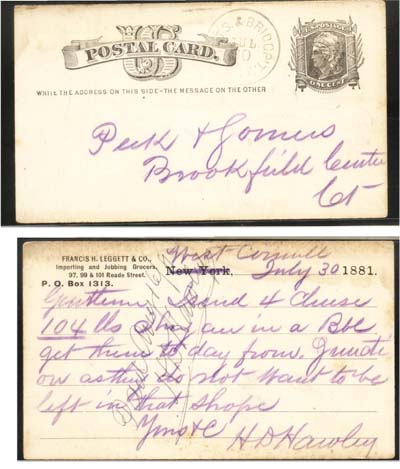 U.S. POSTAGE
US
POSTAL CARD.
ONE CENT
& BRIDGPT.
WRITE THE ADDRESS ON THIS SIDE-THE MESSAGE ON THE OTHER
Peck &
Brookfield Center
Ct
FRANCIS H. LEGGETT & CO.,
Importing and Jobbing Grocers,
97, 99 & 101 Reade Street.
P. O. Box 1313.
West Cornwall
New York, July 30 1881.
Gentlemen I send 4 Cheese
104 lbs they are in a Bbl
get them to day from
on as they do not want to be
left in that shape
Yours &c H D Hawley